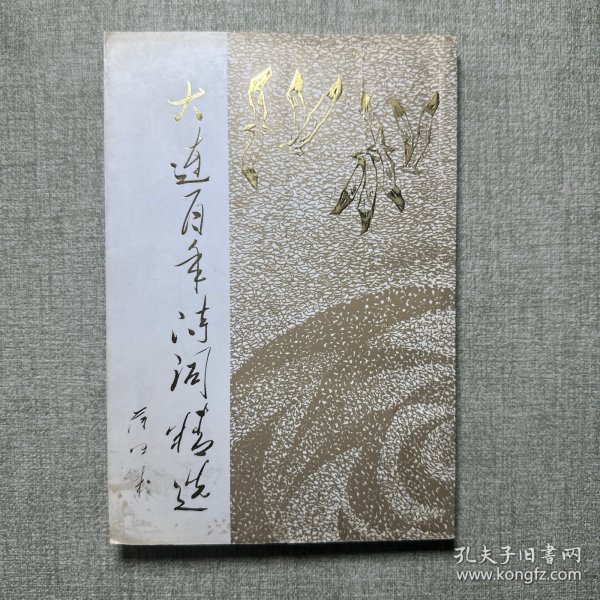 大连百年诗词精选
孔夫子旧書网
www.kongfz.com